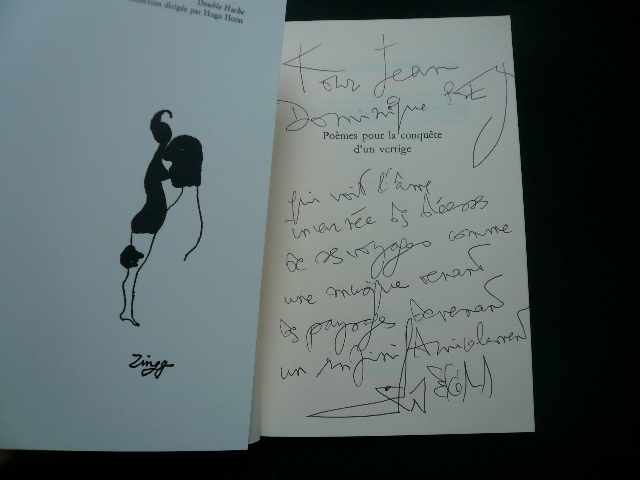 Double Hache
collection dirigée par Hugo Horst
Zingg
Pour Jean
Dominique
Poèmes pour la conquête
d'un vertige
qui voit l'âme
des déesses
de ses voyages comme
une musique venant
des paysages devenant
un infini Amicalement